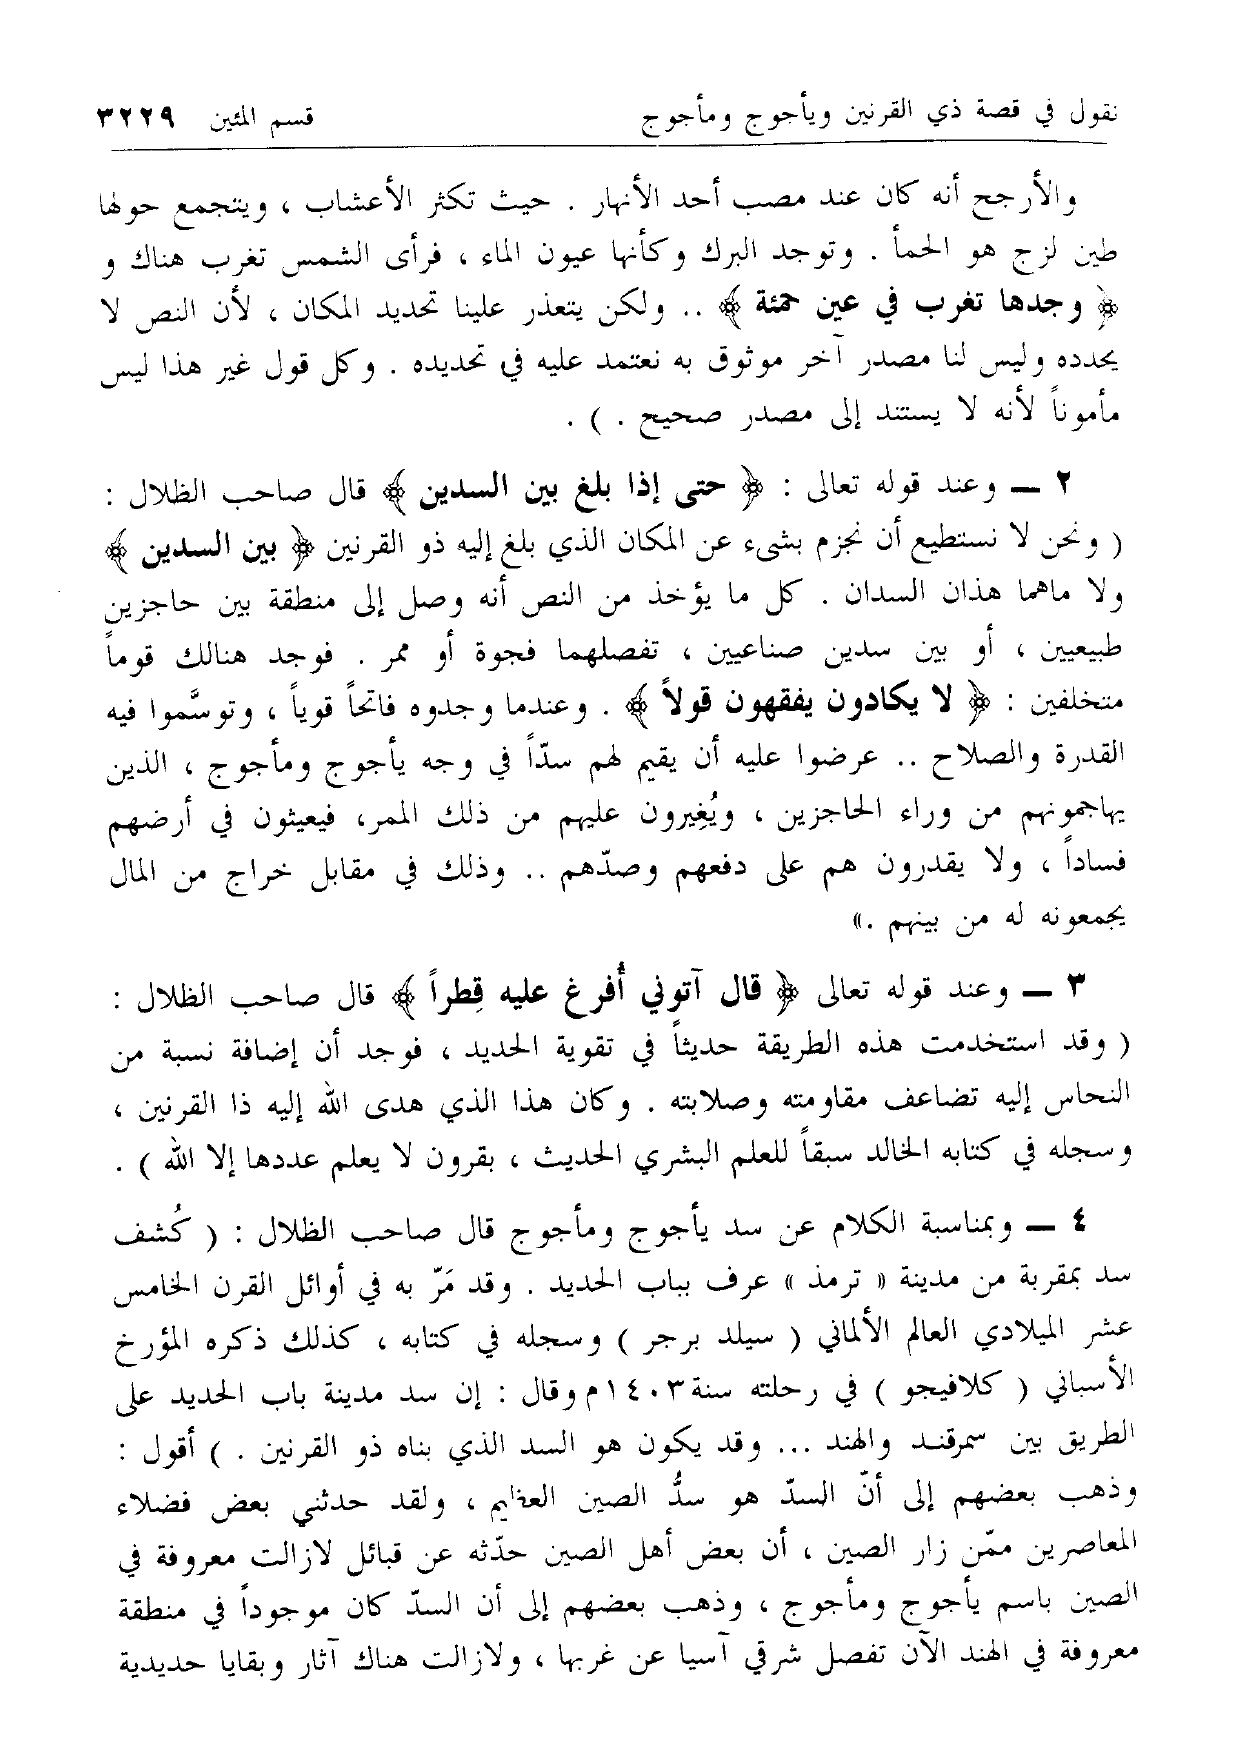 نقول في قصة ذي القرنين ويأجوج ومأجوج قسم المئين ٣٢٢٩
والأرجح أنه كان عند مصب أحد الأنهار . حيث تكثر الأعشاب ، ويتجمع حولها
طين لزج هو الحمأ . وتوجد البرك وكأنها عيون الماء ، فرأى الشمس تغرب هناك و
﴿ وجدها تغرب في عين حمئة ﴾ .. ولكن يتعذر علينا تحديد المكان ، لأن النص لا
يحدده وليس لنا مصدر آخر موثوق به نعتمد عليه في تحديده . وكل قول غير هذا ليس
مأموناً لأنه لا يستند إلى مصدر صحيح . ) .
٢ ــ وعند قوله تعالى : ﴿ حتى إذا بلغ بين السدين ﴾ قال صاحب الظلال :
( ونحن لا نستطيع أن نجزم بشيء عن المكان الذي بلغ إليه ذو القرنين ﴿ بين السدين ﴾
ولا ماهما هذان السدان . كل ما يؤخذ من النص أنه وصل إلى منطقة بين حاجزين
طبيعيين ، أو بين سدين صناعيين ، تفصلهما فجوة أو ممر . فوجد هنالك قوماً
متخلفين : ﴿ لا يكادون يفقهون قولاً ﴾ . وعندما وجدوه فاتحاً قوياً ، وتوسَّموا فيه
القدرة والصلاح .. عرضوا عليه أن يقيم لهم سدّاً في وجه يأجوج ومأجوج ، الذين
يهاجمونهم من وراء الحاجزين ، ويُغِيرون عليهم من ذلك الممر، فيعيثون في أرضهم
فساداً ، ولا يقدرون هم على دفعهم وصدّهم .. وذلك في مقابل خراج من المال
يجمعونه له من بينهم .»
٣ ــ وعند قوله تعالى ﴿ قال آتوني أُفرغ عليه قِطراً ﴾ قال صاحب الظلال :
( وقد استخدمت هذه الطريقة حديثاً في تقوية الحديد ، فوجد أن إضافة نسبة من
النحاس إليه تضاعف مقاومته وصلابته . وكان هذا الذي هدى الله إليه ذا القرنين ،
وسجله في كتابه الخالد سبقاً للعلم البشري الحديث ، بقرون لا يعلم عددها إلا الله ) .
٤ ــ وبمناسبة الكلام عن سد يأجوج ومأجوج قال صاحب الظلال : ( كُشف
سد بمقربة من مدينة « ترمذ » عرف بباب الحديد . وقد مَرّ به في أوائل القرن الخامس
عشر الميلادي العالم الألماني ( سيلد برجر ) وسجله في كتابه ، كذلك ذكره المؤرخ
الأسباني ( كلافيجو ) في رحلته سنة ١٤٠٣ م وقال : إن سد مدينة باب الحديد على
الطريق بين سمرقند والهند ... وقد يكون هو السد الذي بناه ذو القرنين . ) أقول :
وذهب بعضهم إلى أنّ السدّ هو سدُّ الصين العظيم ، ولقد حدثني بعض فضلاء
المعاصرين ممّن زار الصين ، أن بعض أهل الصين حدّثه عن قبائل لازالت معروفة في
الصين باسم يأجوج ومأجوج ، وذهب بعضهم إلى أن السدّ كان موجوداً في منطقة
معروفة في الهند الآن تفصل شرقي آسيا عن غربها ، ولازالت هناك آثار وبقايا حديدية